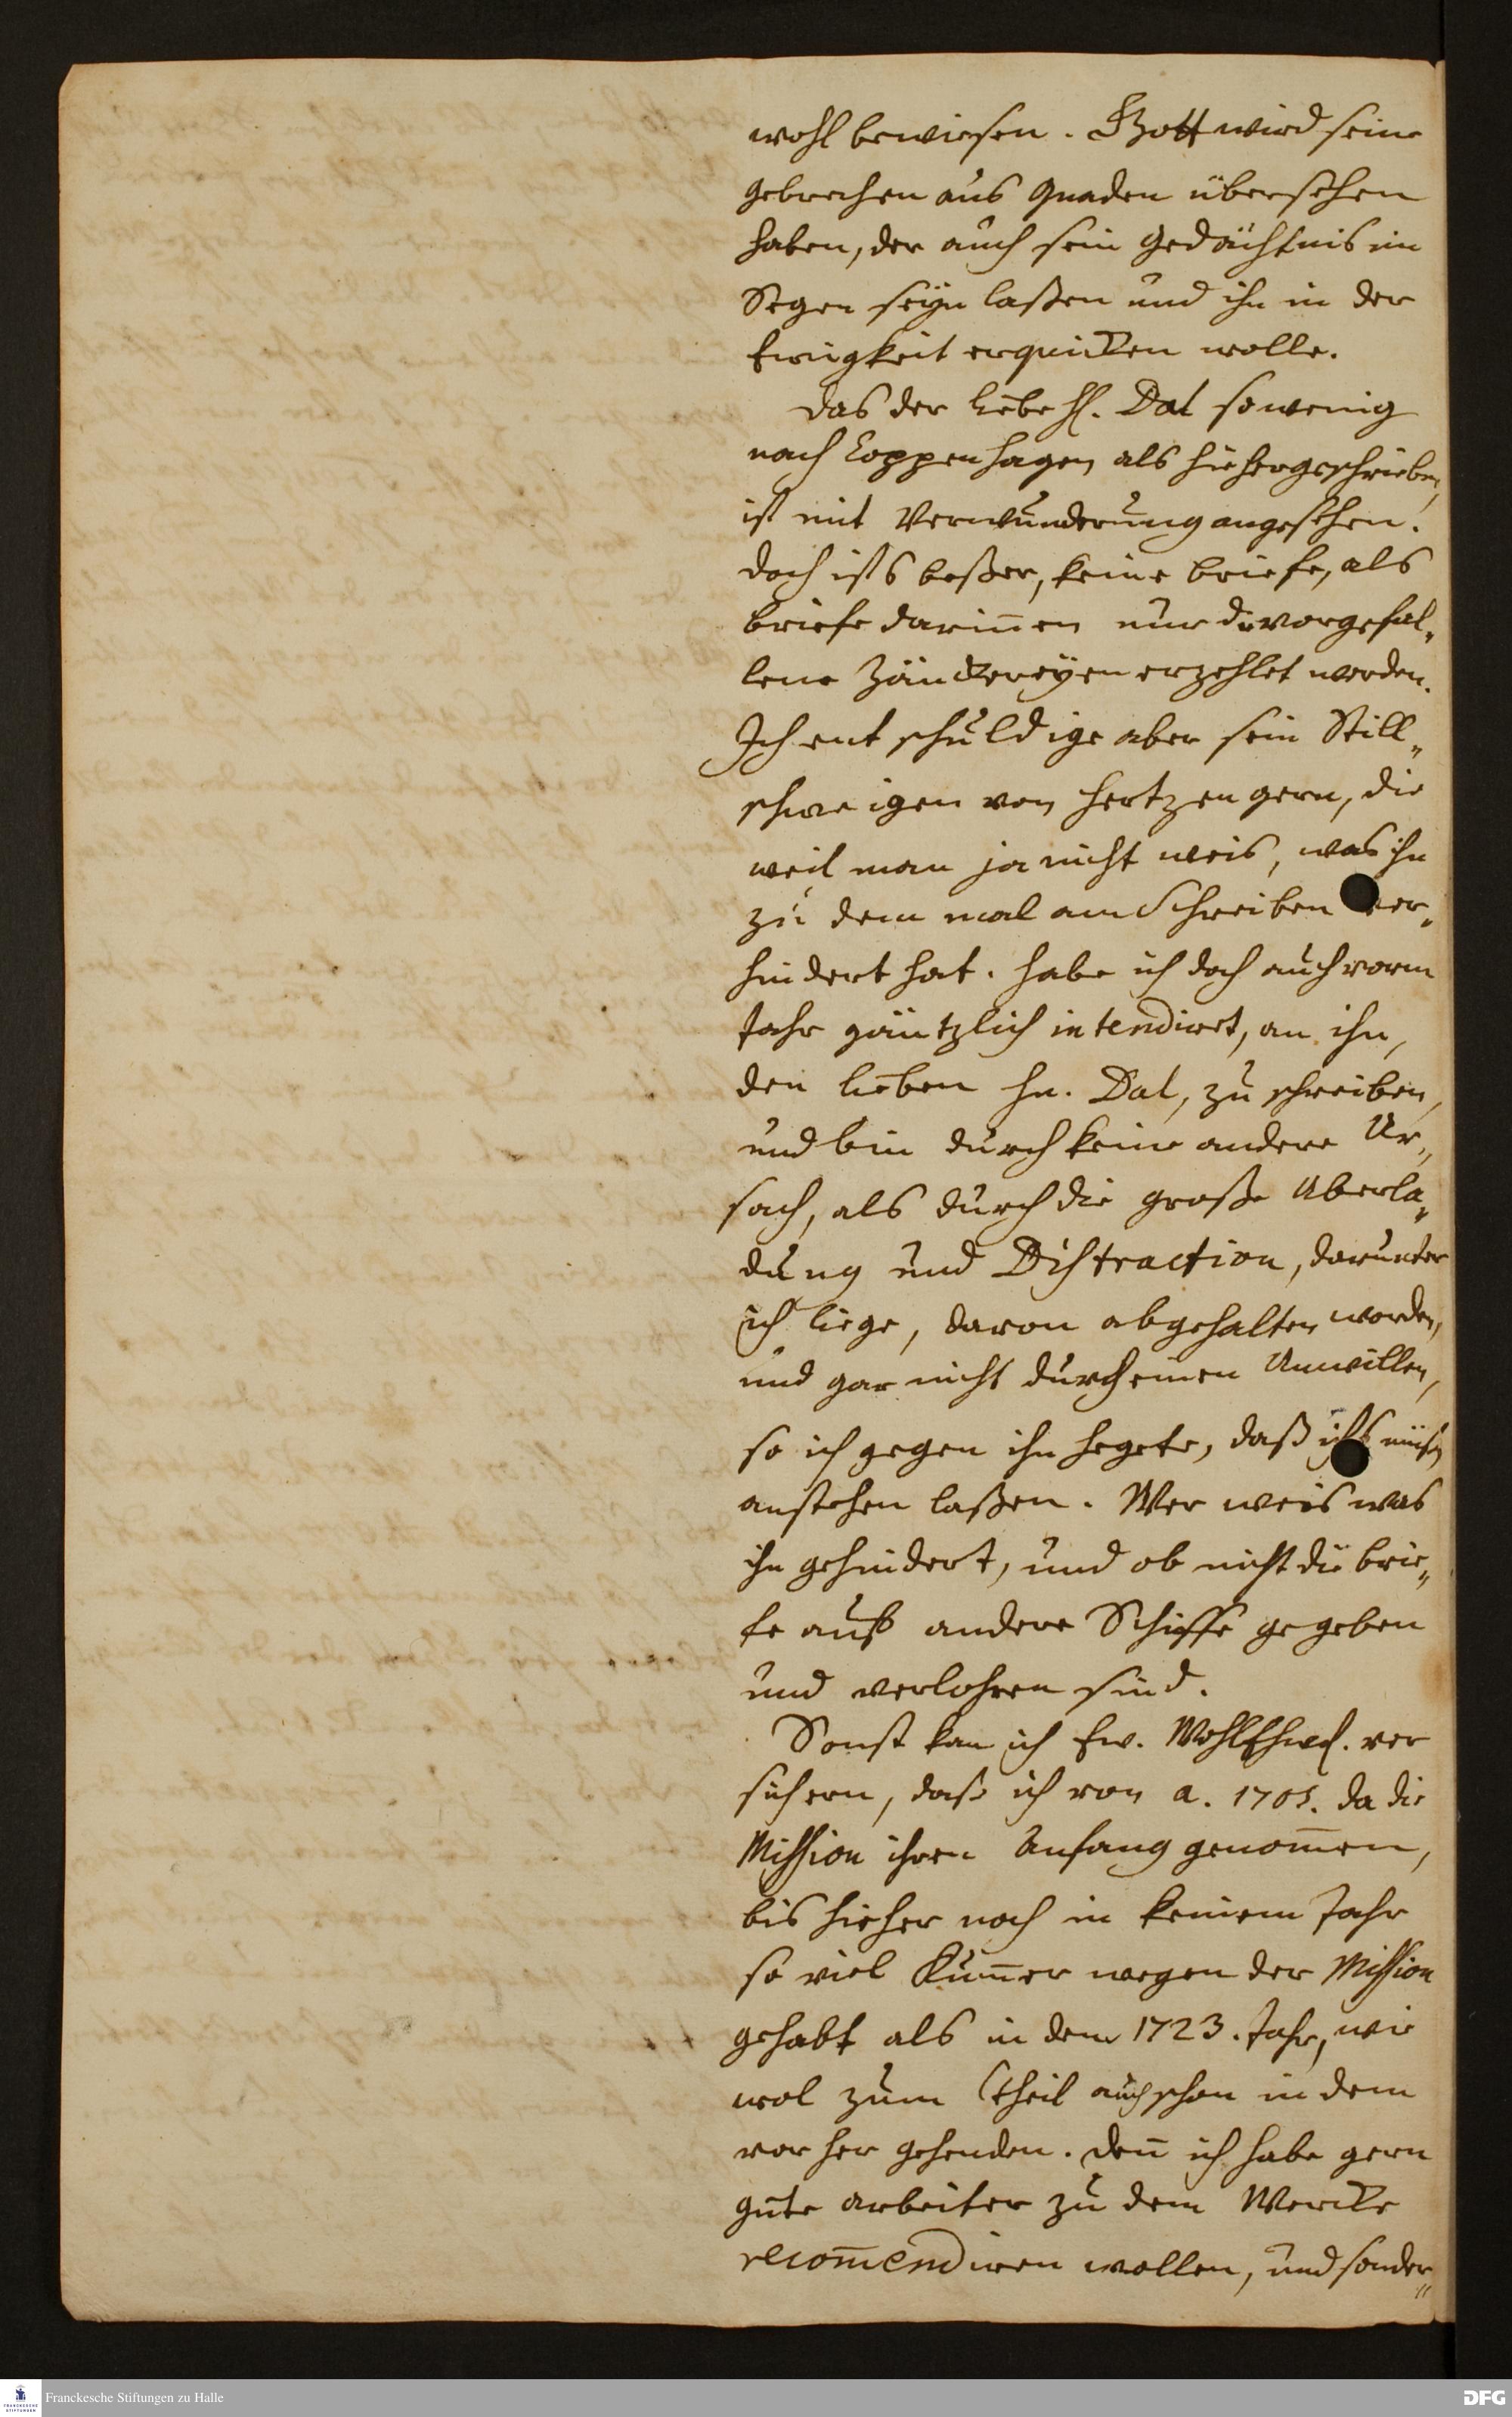 wohl bewiesen. Gott wird seine
gebrechen aus Gnaden übersehen
haben, der auch sein Gedächtnis im
Segen seyn laßen und ihn in der
Ewigkeit erquicken wolle.
Das der liebe H. Dal so wenig
nach Coppenhagen als hiehergeschrieben,
ist mit Verwunderung angesehen.
doch ists beßer, keine briefe, als
briefe darin̅en nur die vorgefal„
lene Zänckereÿen erzehlet werden.
Ich entschuldige aber sein Still„
schweigen von Hertzen gern, die
weil man ja nicht weis, was ihn
zu dem mal am Schreiben ver„
hindert hat. habe ich doch auch vorm
Jahr gäntzlich intendiret, an ihn,
den lieben Hn. Dal, zu schreiben,
und bin durch keine andere Ur„
sach, als durch die große Uberla„
dung und Distraction, darunter
ich liege, davon abgehalten worden,
und gar nicht durch einen Unwillen,
so ich gegen ihn hegete, daß ichs müßen
anstehen laßen. Wer weis was
ihn gehindert, und ob nicht die brie„
fe auf andere Schiffe gegeben
und verlohren sind.
Sonst kan ich Ew. WohlEhrw. ver
sichern, daß ich von a. 1705. da die
Mission ihren Anfang genom̅en,
bis hieher noch in keinem Jahr
so viel Kum̅er wegen der Mission
gehabt als in dem 1723. Jahr, wie
wol zum theil auch schon in dem
vorher gehenden. den̅ ich habe gern
gute arbeiter zu dem Wercke
recom̅endiren wollen, und sonder„
Franckesche Stiftungen zu Halle
DFG